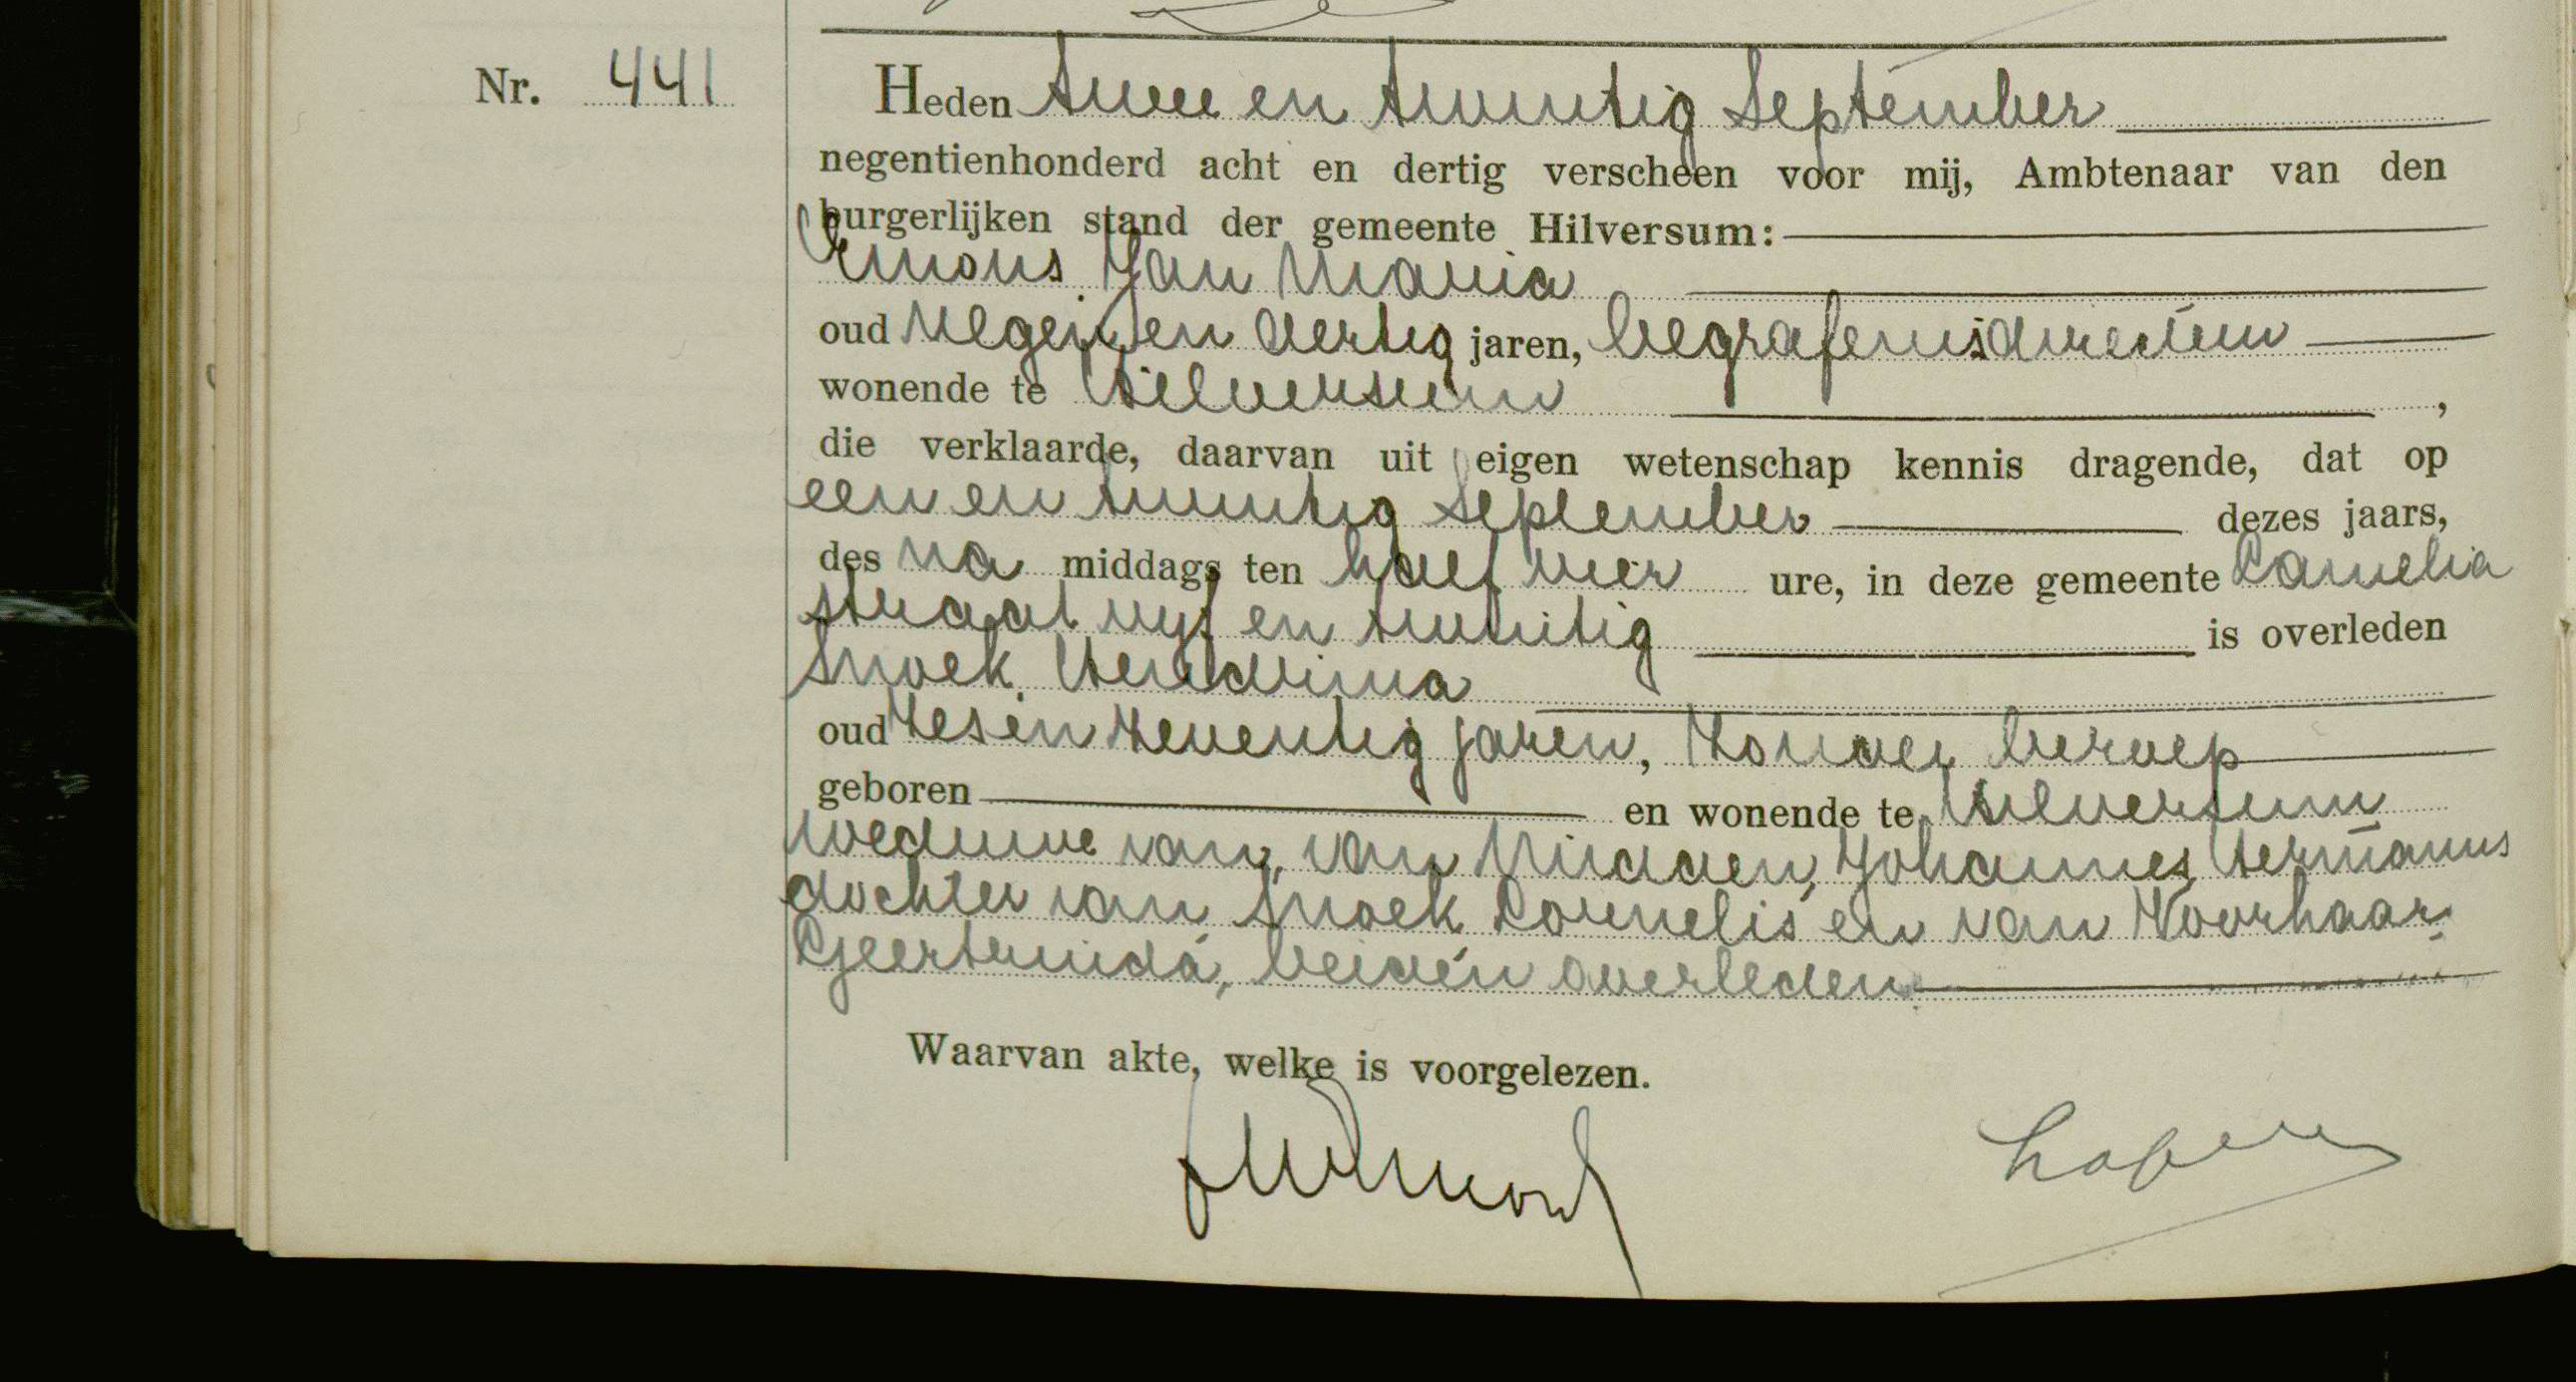 Nr. 441
Heden twee en twintig September
negentienhonderd acht en dertig verscheen voor mij, Ambtenaar van den
burgerlijken stand der gemeente Hilversum:
Emons, Jan Maria
oud negen en dertig jaren, begrafenisdirecteur
wonende te Hilversum,
die verklaarde, daarvan uit eigen wetenschap kennis dragende, dat op
een en twintig September dezes jaars,
des na middags ten half vier ure, in deze gemeente Camelia
straat vijf en twintig is overleden
Snoek, Hendrina
oud zes en zeventig jaren, zonder beroep
geboren en wonende te Hilversum
weduwe van, van Midden, Johannes Hermanus
dochter van Snoek, Cornelis en van Voorhaar,
Geertruida, beiden overleden.
Waarvan akte, welke is voorgelezen.